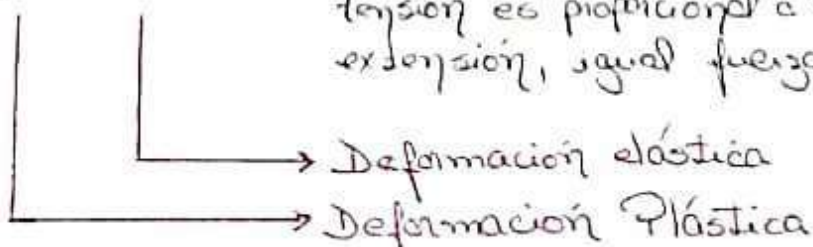 tensión es proporcional a
extensión, igual fuerza
Deformación elástica
Deformación Plástica